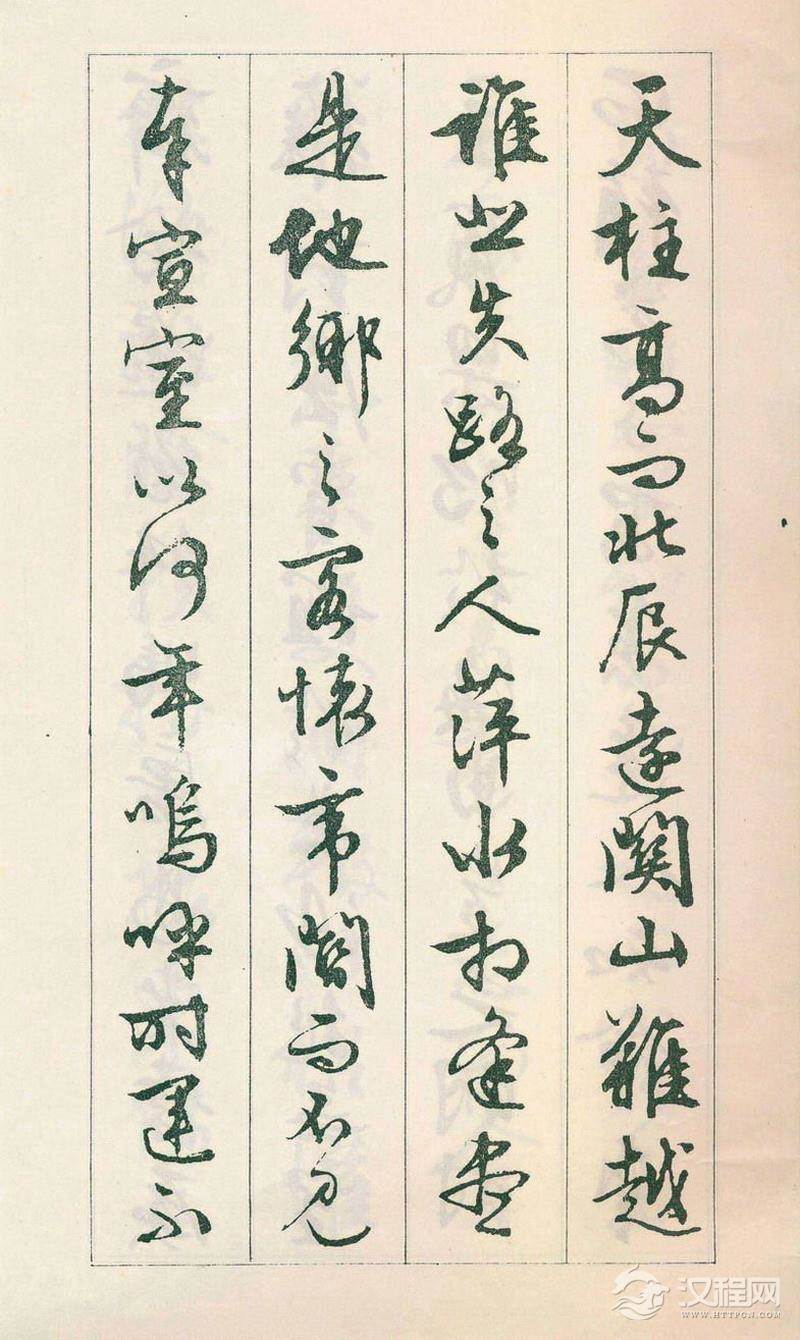 天柱高而北辰遠關山難越
誰悲失路之人萍水相逢盡
是他鄉之客懷帝閽而不見
奉宣室以何年嗚呼時運不
汉程网
WWW.HTTPCN.COM